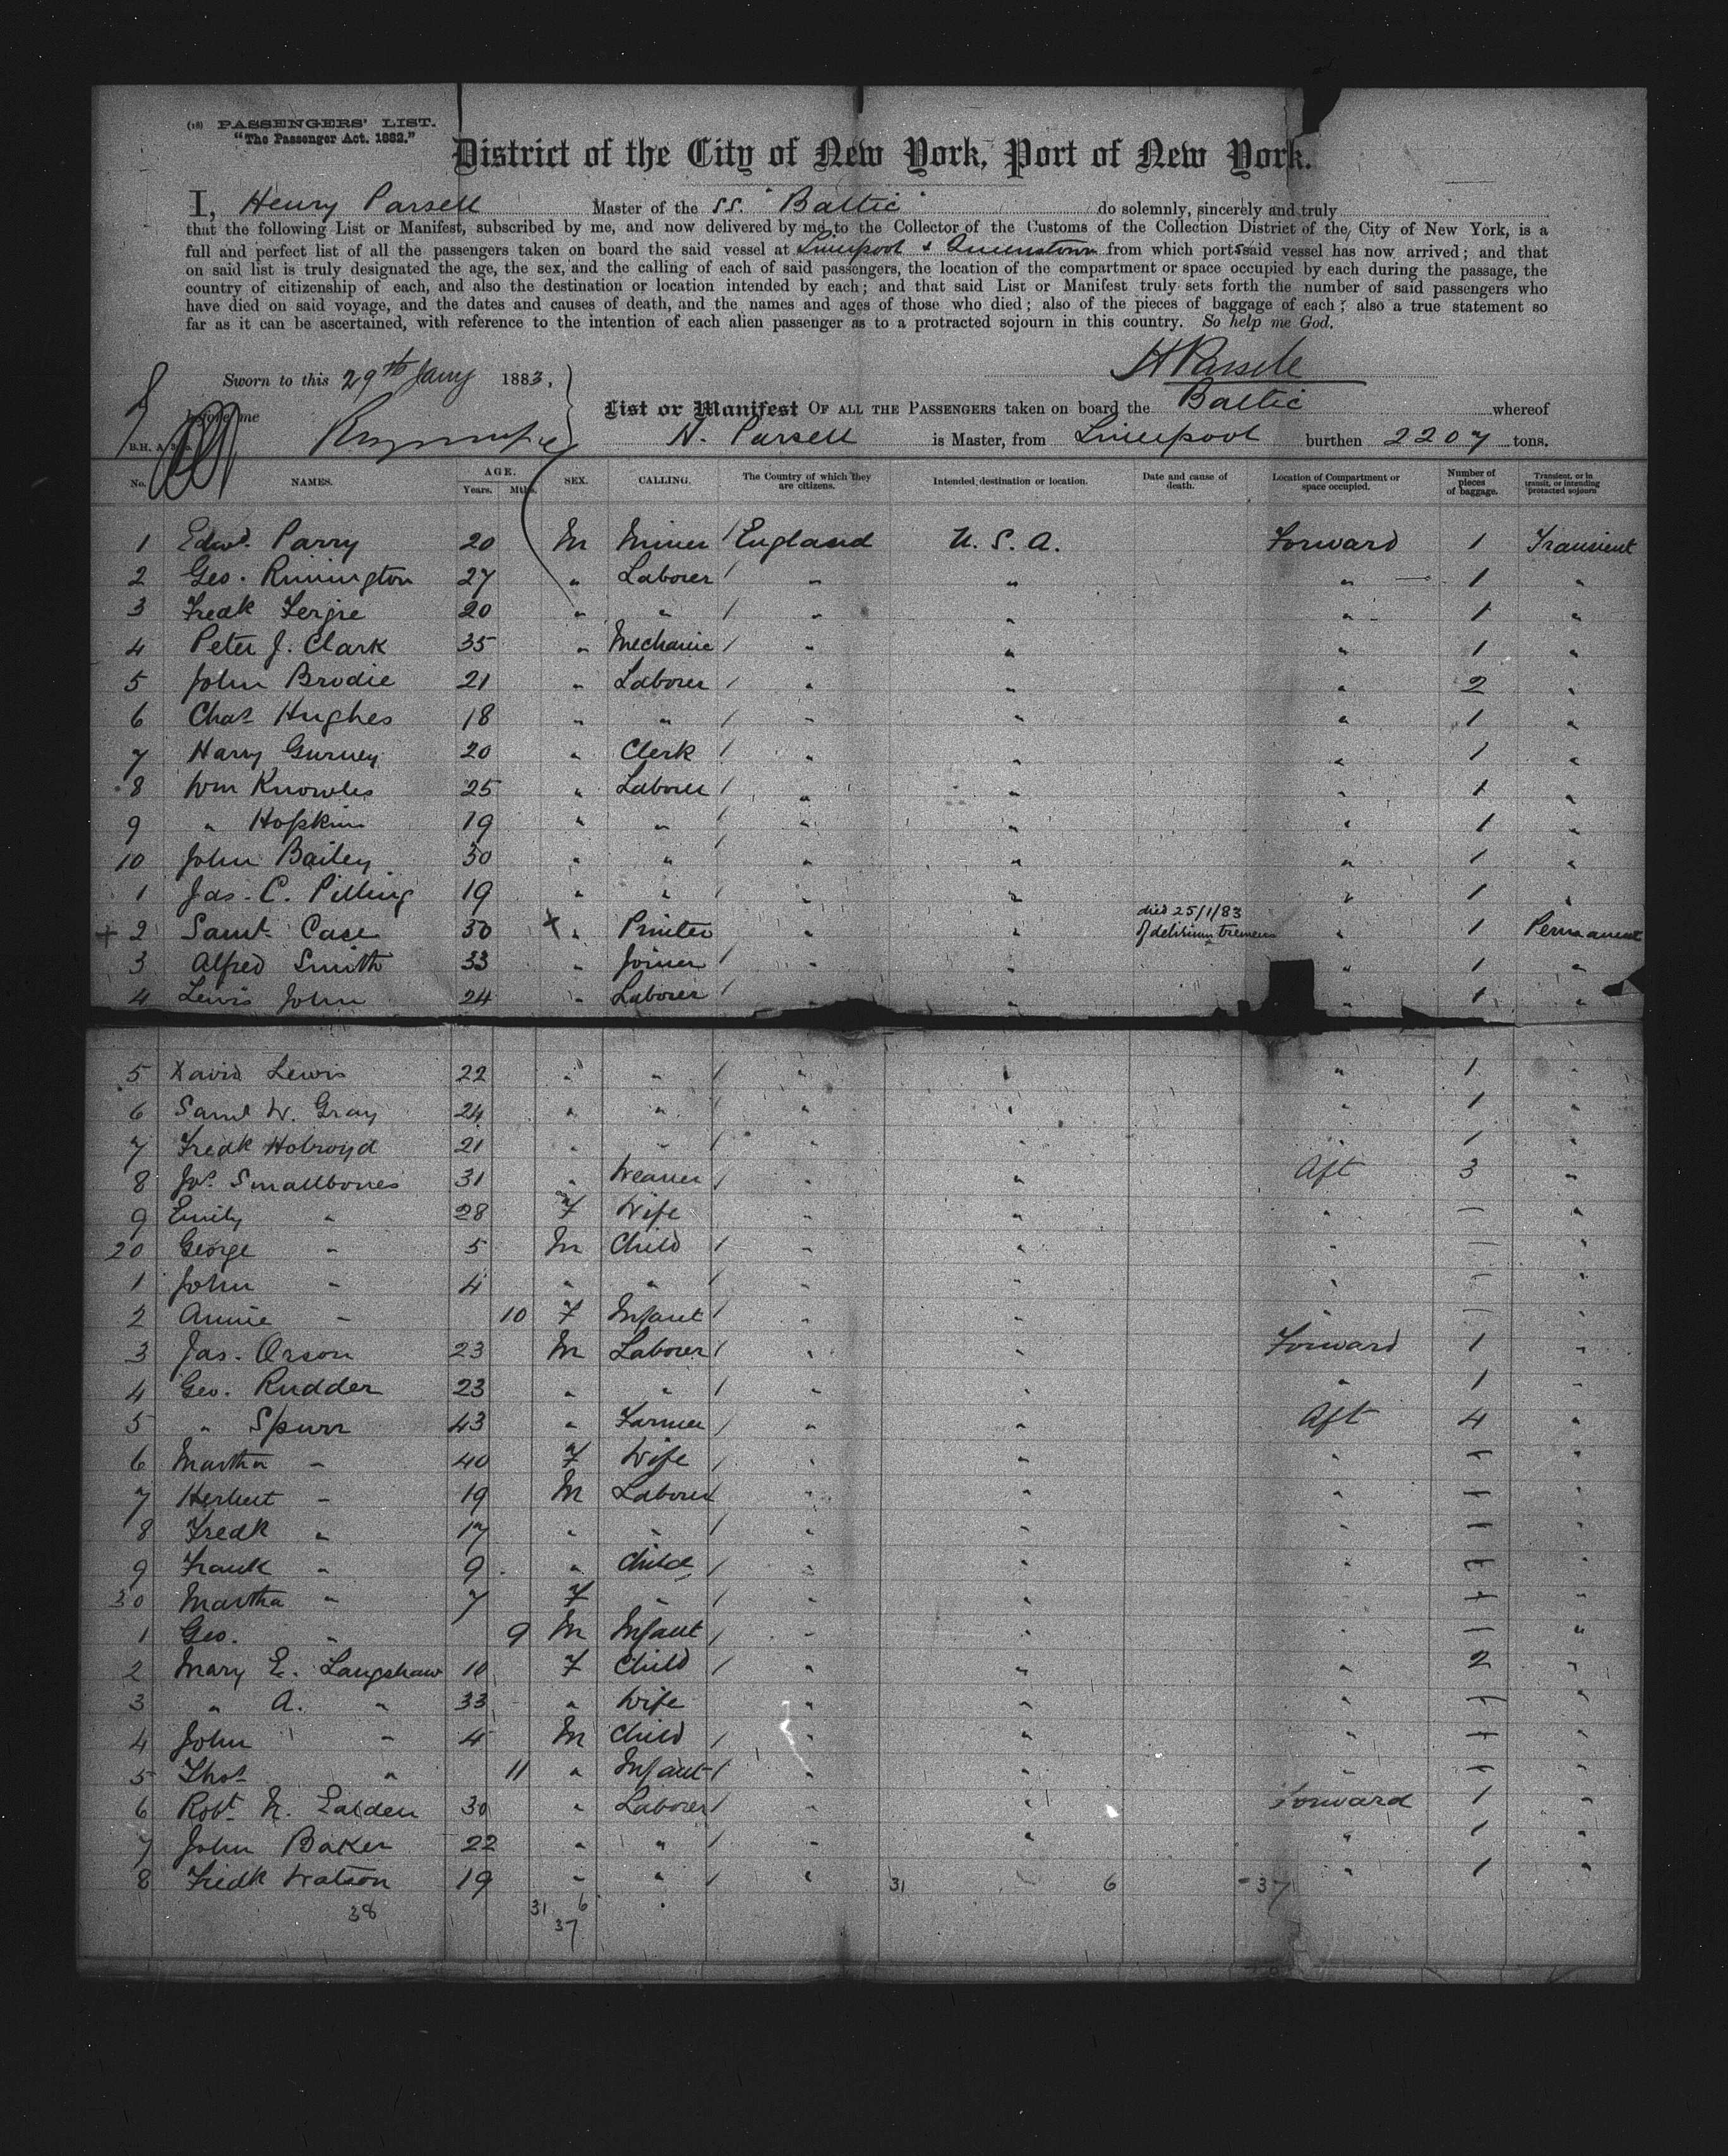 (18) PASSENGERS' LIST.
"The Passenger Act. 1882."
District of the City of New York, Port of New York.
I, Henry Parsell Master of the SS. "Baltic" do solemnly, sincerely and truly
that the following List or Manifest, subscribed by me, and now delivered by me to the Collector of the Customs of the Collection District of the City of New York, is a
full and perfect list of all the passengers taken on board the said vessel at Liverpool & Queenstown from which ports said vessel has now arrived; and that
on said list is truly designated the age, the sex, and the calling of each of said passengers, the location of the compartment or space occupied by each during the passage, the
country of citizenship of each, and also the destination or location intended by each; and that said List or Manifest truly sets forth the number of said passengers who
have died on said voyage, and the dates and causes of death, and the names and ages of those who died; also of the pieces of baggage of each; also a true statement so
far as it can be ascertained, with reference to the intention of each alien passenger as to a protracted sojourn in this country. So help me God.
H Parsell
Sworn to this 29th Jany 1883,
before me
List or Manifest OF ALL THE PASSENGERS taken on board the Baltic whereof
H. Parsell is Master, from Liverpool burthen 2207 tons.
No. NAMES. AGE. Years. Mths. SEX. CALLING. The Country of which they are citizens. Intended destination or location. Date and cause of death. Location of Compartment or space occupied. Number of pieces of baggage. Transient, or in transit, or intending protracted sojourn
1 Edwd. Parry 20 M Miner / England U. S. A. Forward 1 Transient
2 Geo. Rimington 27 " Laborer / " " " 1 "
3 Fredk 20 " " / " " " 1 "
4 Peter J. Clark 35 " Mechanic / " " " 1 "
5 John Brodie 21 " Laborer / " " " 2 "
6 Chas Hughes 18 " " / " " " 1 "
7 Harry Gurney 20 " Clerk / " " " 1 "
8 Wm Knowles 25 " Laborer / " " " 1 "
9 " Hopkins 19 " " / " " " 1 "
10 John Bailey 30 " " / " " " 1 "
1 Jas. C. Pilling 19 " " / " " " 1 "
+ 2 Saml. Case 30 + " Printer " " died 25/1/83 of delirium tremens " 1 Permanent
3 Alfred Smith 33 " Joiner / " " " 1 "
4 Lewis John 24 " Laborer / " " " 1 "
5 David Lewis 22 " " / " " " 1 "
6 Saml W. Gray 24 " " / " " " 1 "
7 Fredk Holroyd 21 " " / " " " 1 "
8 Jos. Smallbones 31 " Weaver / " " Aft 3 "
9 Emily " 28 F Wife " " " — "
20 George " 5 M Child / " " " — "
1 John " 4 " " / " " " — "
2 Annie " 10 F Infant / " " " — "
3 Jas. Orson 23 M Laborer / " " Forward 1 "
4 Geo. Rudder 23 " " / " " " 1 "
5 " Spurr 43 " Farmer / " " Aft 4 "
6 Martha " 40 F Wife / " " " — "
7 Herbert " 19 M Laborer " " " — "
8 Fredk " 17 " " / " " " — "
9 Frank " 9 " Child / " " " — "
30 Martha " 7 F " / " " " — "
1 Geo. " 9 M Infant / " " " — "
2 Mary E. Langshaw 10 F Child / " " " 2 "
3 " A. " 33 " Wife " " " — "
4 John " 4 M Child / " " " — "
5 Thos " 11 " Infant / " " " — "
6 Robt. N. 30 " Laborer / " " Forward 1 "
7 John Baker 22 " " / " " " 1 "
8 Fredk Watson 19 " " / " " 1 "
31 6 - 37
38 31 6
37